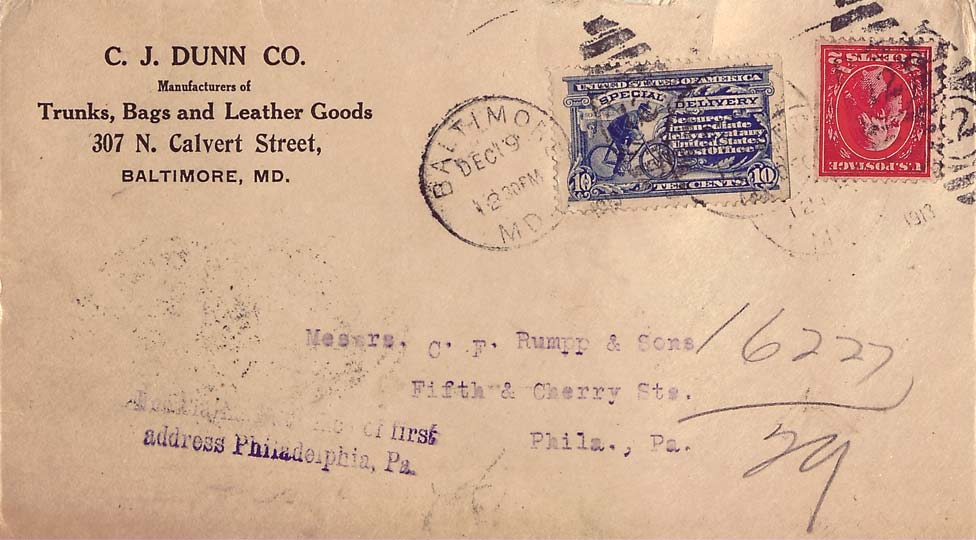 C. J. DUNN CO.
Manufacturers of
Trunks, Bags and Leather Goods
307 N. Calvert Street,
BALTIMORE, MD.
BALTIMOR
DEC 19
12 30 PM
MD.
UNITED STATES OF AMERICA
SPECIAL DELIVERY
Secures
immediate
delivery at any
United States
post office
10 TEN CENTS 10
U.S. POSTAGE
2 CENTS 2
1913
Messrs. C. F. Rumpp & Sons
Fifth & Cherry Sts.
Phila., Pa.
16227
29
of first
address Philadelphia, Pa.